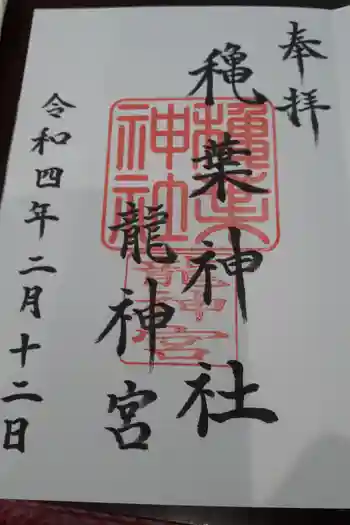 奉拝
穐葉神社
龍神宮
令和四年二月十二日
穐葉神社
龍神宮